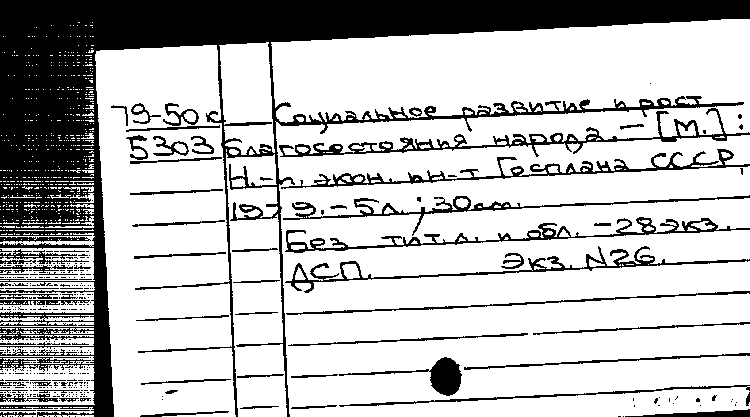 79-50с Социальное развитие и рост
5303 благосостояния народа. — [М.] :
Н.-и. экон. ин-т Госплана СССР,
1979. - 5л.; 30см.
Без тит.л. и обл. - 28экз.
ДСП. Экз. N26.